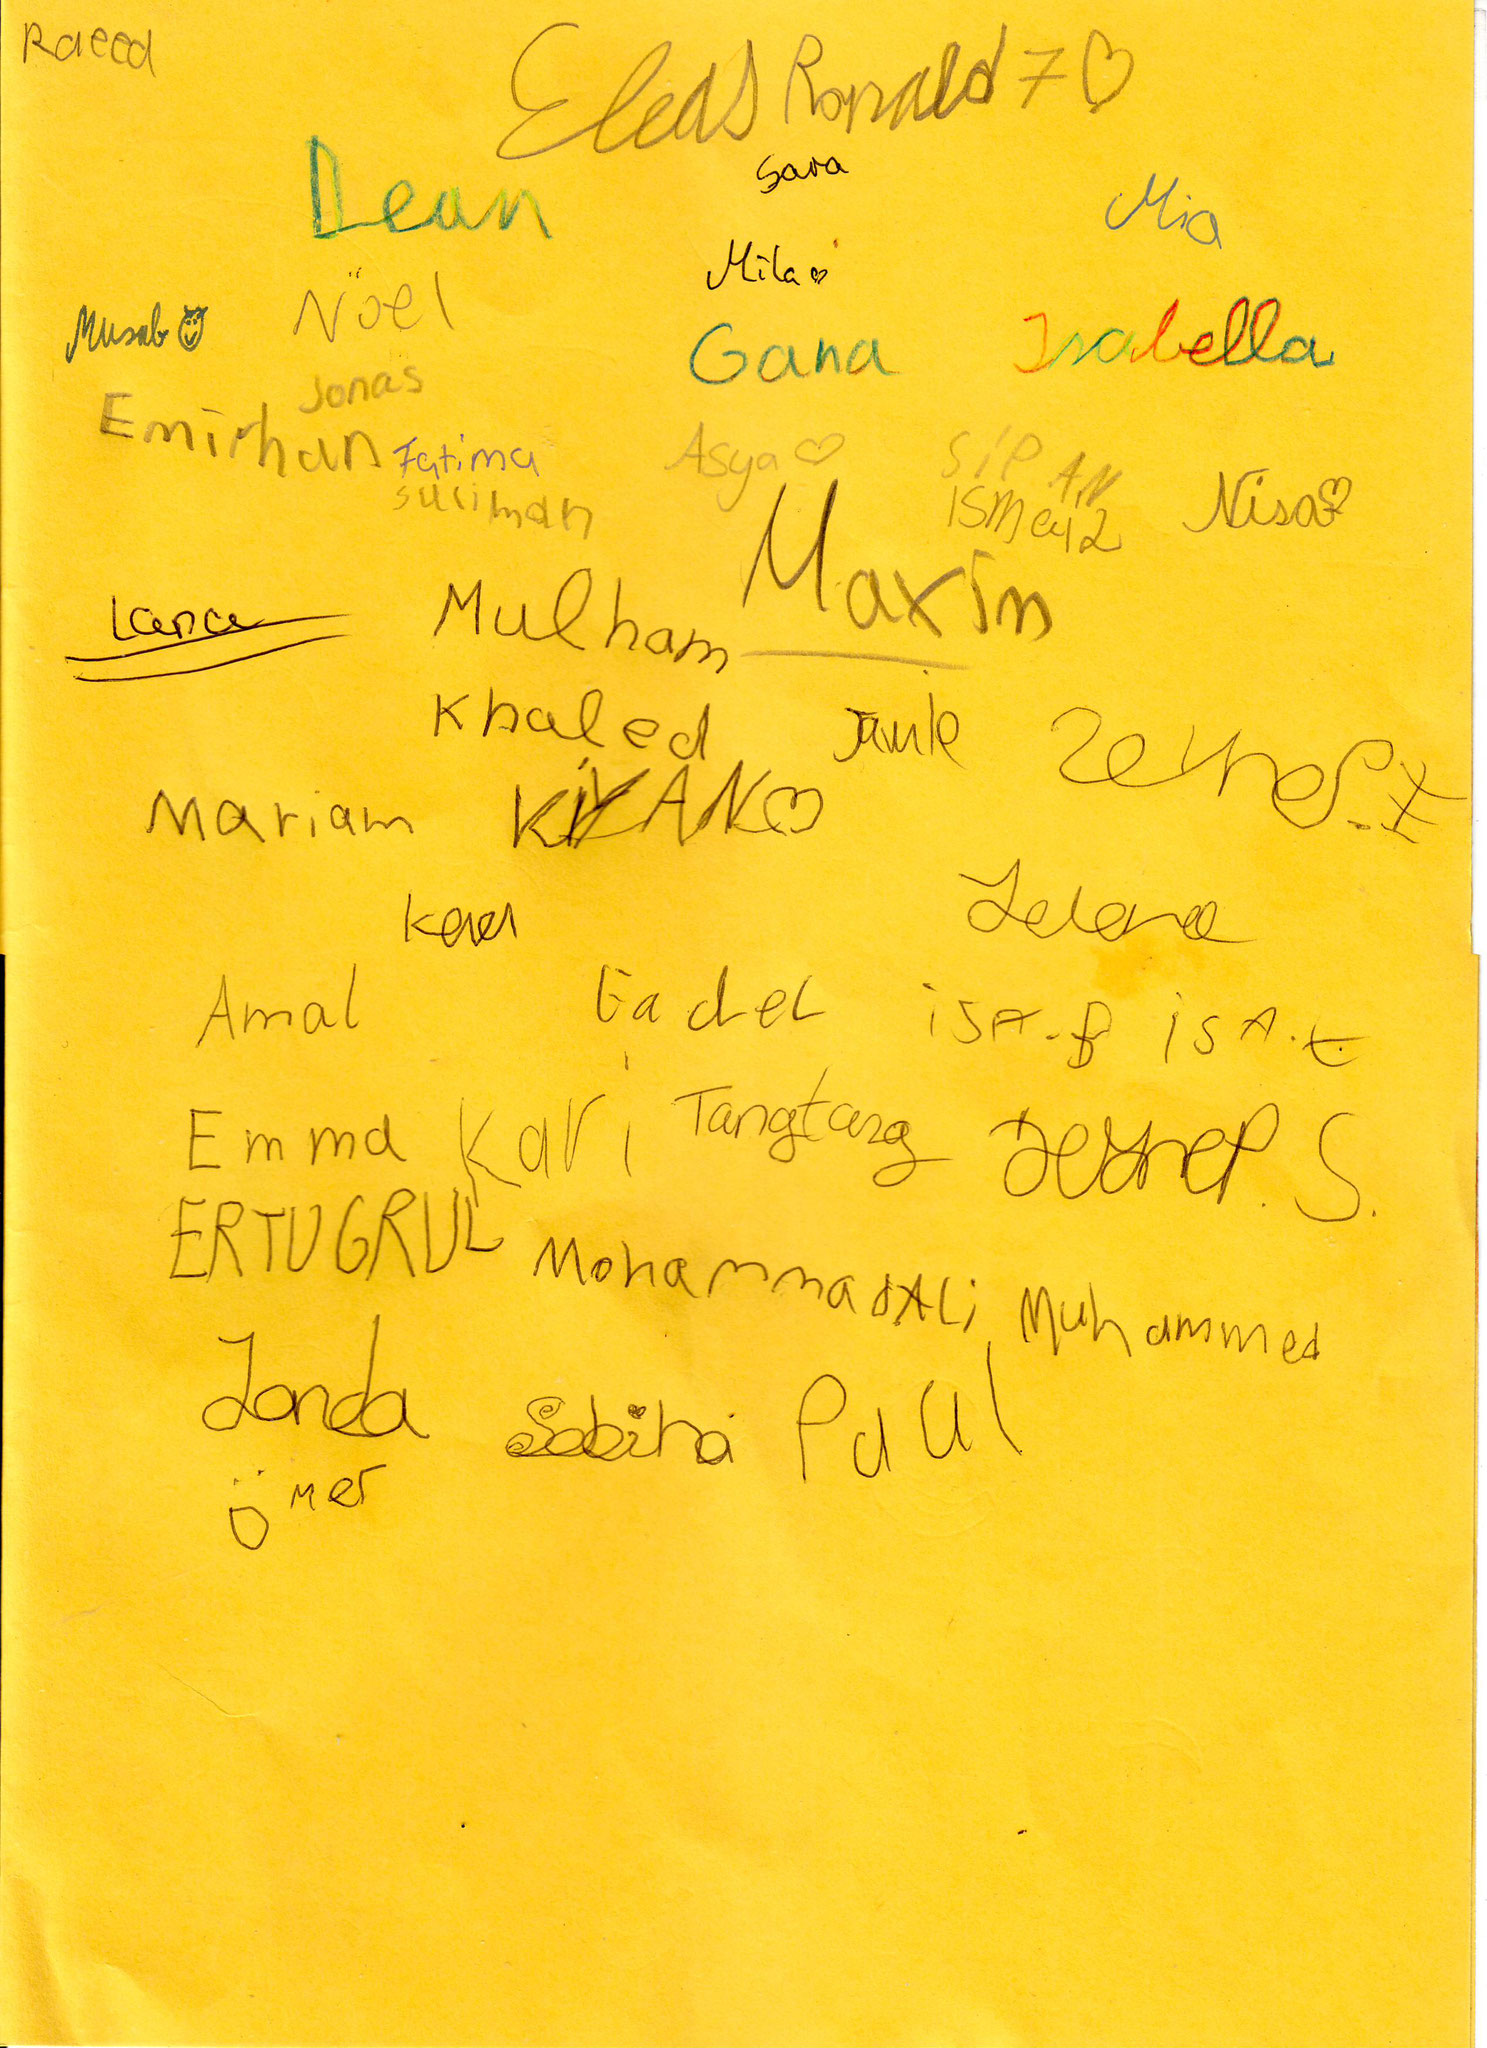 Raeed
Eleas Ronald 7♡
Dean
Sara
Mia
Mila♡
Musab
Nöel
Gana
Isabella
Jonas
Emirhan
Fatima
Asya♡
SİPAN
Nisa♡
suliman
Maxim
Lana
Mulham
Khaled
Zeynep.Z
Mariam
KİYAN♡
Jelena
Amal
Gadel
iSA.B iSA.
Emma
Kari
Tangtang
Zeynep. S.
ERTUGRUL
MohammadAli
Muhammed
Jonda
Sabiha
Paul
ömer